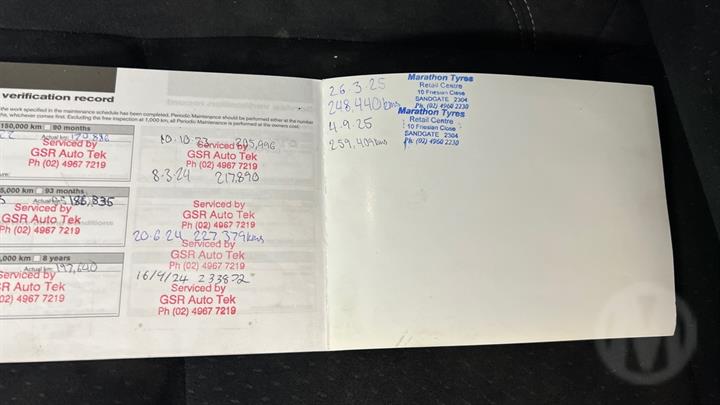 verification record
the work specified in the maintenance schedule has been completed. Periodic Maintenance should be performed either at the number
whichever comes first. Excluding the free inspection at 1,000 km, all Periodic Maintenance is performed at the owners cost.
150,000 km 90 months
Actual km:
Serviced by
GSR Auto Tek
Ph (02) 4967 7219
5,000 km 93 months
Actual km: 186,835
Serviced by
GSR Auto Tek
(02) 4967 7219
,000 km 8 years
Actual km: 197,640
Serviced by
GSR Auto Tek
02) 4967 7219
10.10.23 205,996
Serviced by
GSR Auto Tek
Ph (02) 4967 7219
8.3.24 217,890
Serviced by
GSR Auto Tek
Ph (02) 4967 7219
20.6.24 227,379kms
Serviced by
GSR Auto Tek
Ph (02) 4967 7219
16/9/24 233872
Serviced by
GSR Auto Tek
Ph (02) 4967 7219
26.3.25
248,440kms
4.9.25
259,409kms
Marathon Tyres
Retail Centre
10 Friesian Close
SANDGATE 2304
Ph: (02) 4960 2230
Marathon Tyres
Retail Centre
10 Friesian Close
SANDGATE 2304
Ph: (02) 4960 2230